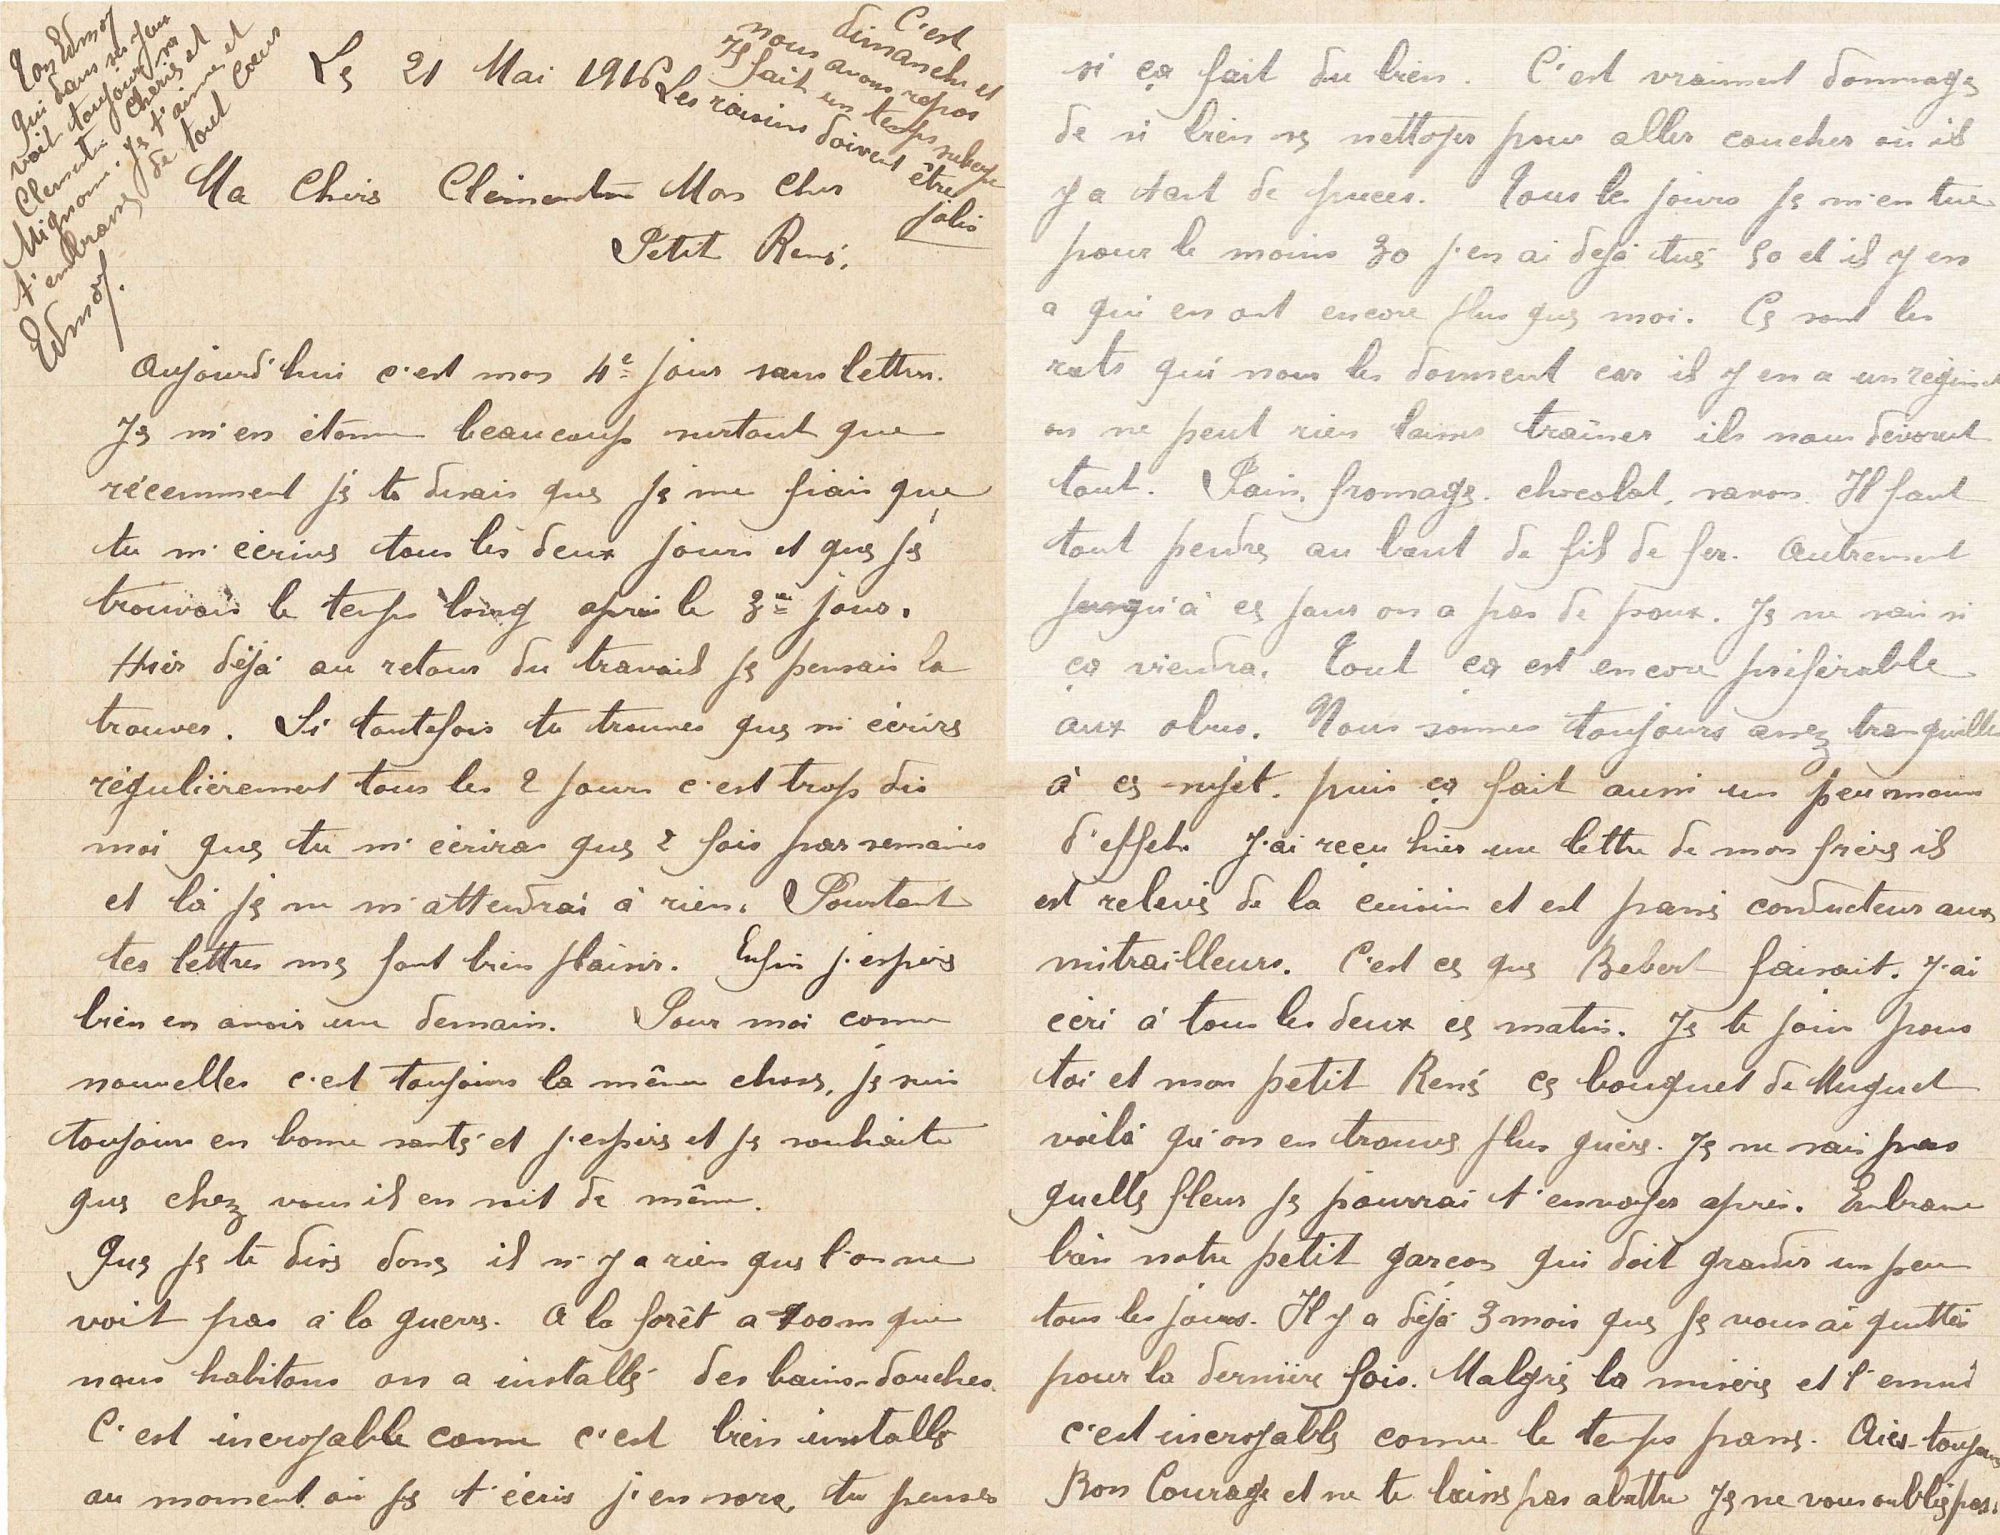 Le 21 Mai 1916
Ma Chère Clémentine Mon Cher
Petit René.
Aujourd'hui c'est mon 4e jour sans lettre.
Je m'en étonne beaucoup surtout que
récemment je te disais que je me fiais que
tu m'écrive tous les deux jours et que je
trouvais le temps long après le 3e jour.
Hier déjà au retour du travail je pensais la
trouver. Si toutefois tu trouves que m'écrire
régulièrement tous les 2 jours c'est trop dis
moi que tu m'écriras que 2 fois par semaine
et là je ne m'attendrai à rien. Pourtant
tes lettres me font bien plaisir. Enfin j'espère
bien en avoir une demain. Pour moi comme
nouvelles c'est toujours la même chose, je suis
toujours en bonne santé et j'espère et je souhaite
que chez vous il en soit de même.
Que je te dise donc il n'y a rien que l'on ne
voit pas à la guerre. A la forêt a 900m que
nous habitons on a installé des bains-douches.
C'est incroyable comme c'est bien installé
au moment où je t'écris j'en sors, tu penses
si ça fait du bien. C'est vraiment dommage
de si bien se nettoyer pour aller coucher où il
y a tant de puces. Tous les jours je m'en tue
pour le moins 30 j'en ai déjà tué 50 et il y en
a qui en ont encore plus que moi. Ce sont les
rats qui nous les donnent car il y en a un régiment
on ne peut rien laisser traîner ils nous dévorent
tout. Pain, fromage. chocolat, savon. Il faut
tout pendre au bout de fil de fer. Autrement
jusqu'à ce jour on a pas de poux. Je ne sais si
ça viendra. Tout ça est encore préférable
aux obus. Nous sommes toujours assez tranquilles
à ce sujet. puis ça fait aussi un peu moins
d'effet. J'ai reçu hier une lettre de mon frère il
est relevé de la cuisine et est passé conducteur aux
mitrailleurs. C'est ce que Bebert faisait. J'ai
écri à tous les deux ce matin. Je te join pour
toi et mon petit René ce bouquet de Muguet
voilà qu'on en trouve plus guère. Je ne sais pas
quelle fleur je pourrai t'envoyer après. Embrasse
bien notre petit garçon qui doit grandir un peu
tous les jours. Il y a déjà 3 mois que je vous ai quittés
pour la dernière fois. Malgré la misère et l'ennui
c'est incroyable comme le temps passe. Aies-toujours
Bon Courage et ne te laisse pas abattre Je ne vous oublie pas.
C'est
dimanche et
nous avons repos
Il fait un temps superbe
Les raisins doivent être
jolis
Ton Edmof
qui dans ses jours
voit toujours sa
Clementine chérie et
Mignonne. Je t'aime et
t'embrasse de tout Coeur
Edmof.